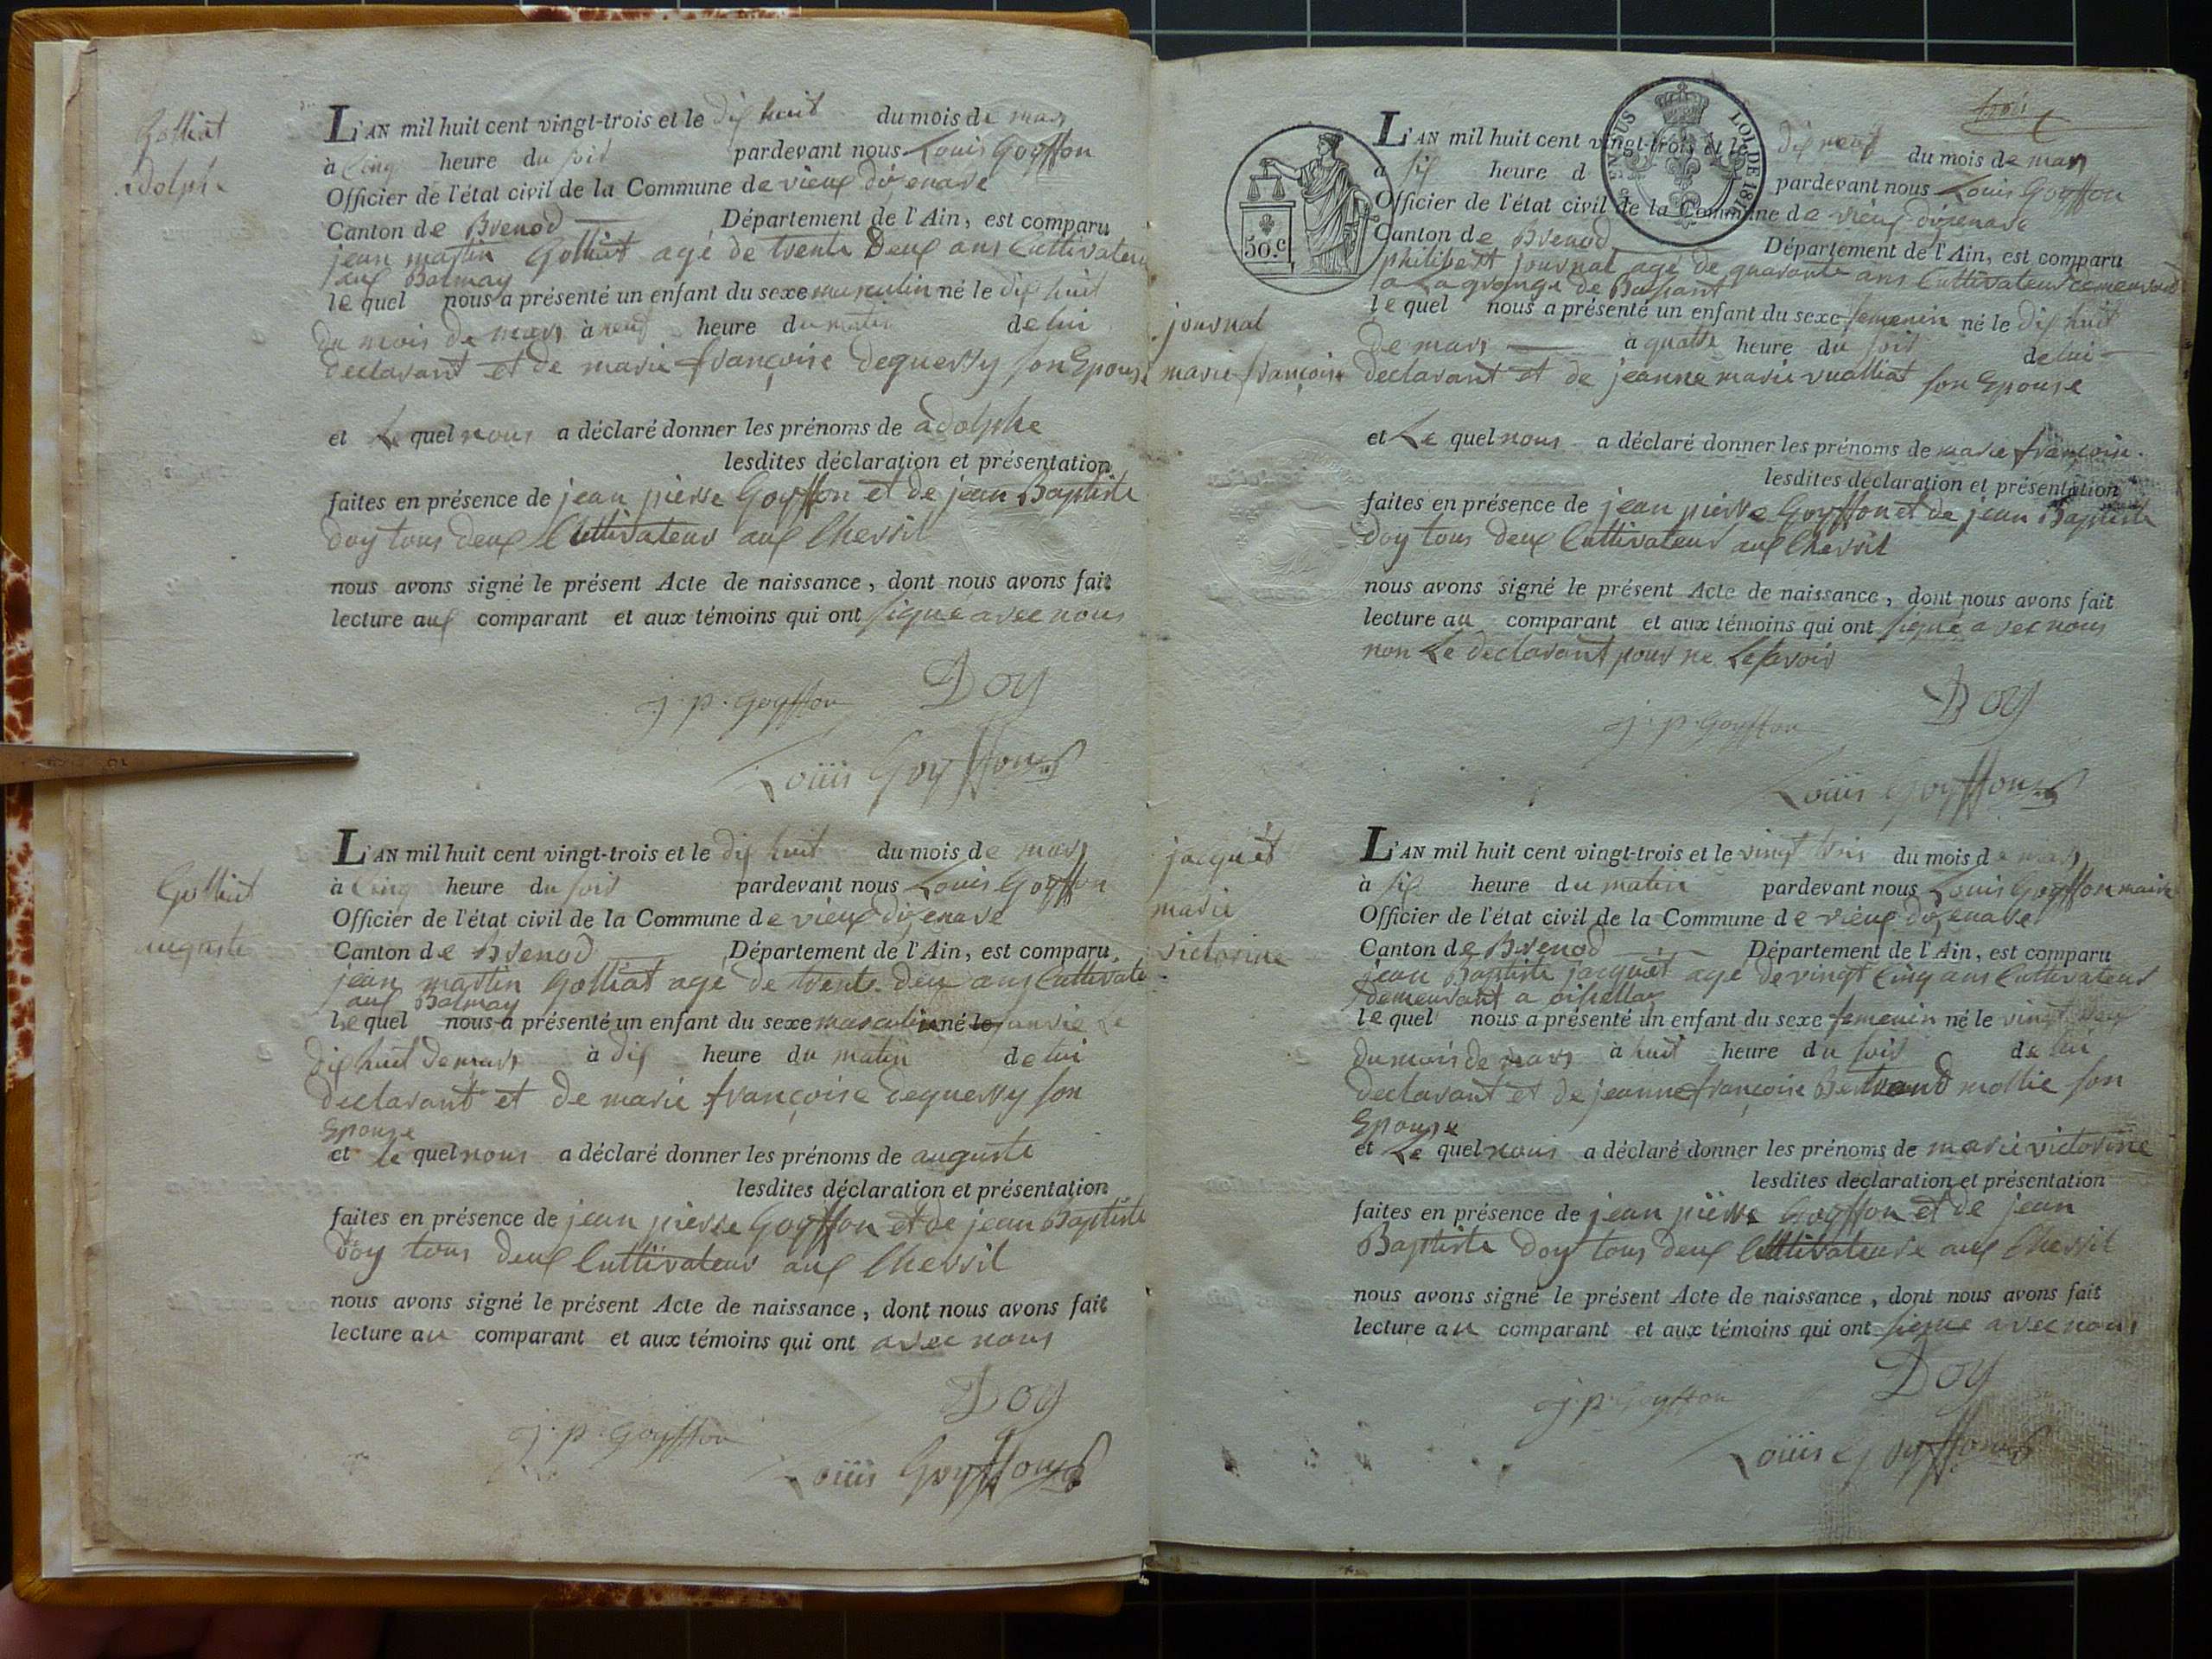 Golliat
adolphe
L'AN mil huit cent vingt-trois et le dix huit du mois de mars
à cinq heure du soir pardevant nous Louis Goyffon
Officier de l'état civil de la Commune de vieux dizenave
Canton de Brenod Département de l'Ain, est comparu
jean martin Golliat agé de trente Deux ans Cultivateur
aux Balmay
le quel nous a présenté un enfant du sexe masculin né le dix huit
du mois de mars à neuf heure du matin de lui
declarant et de marie françoise dequerry son Epouse
et Le quel nous a déclaré donner les prénoms de adolphe
lesdites déclaration et présentation
faites en présence de jean pierre Goyffon et de jean Baptiste
Doy tous deux Cultivateur aux Chevril
nous avons signé le présent Acte de naissance, dont nous avons fait
lecture aux comparant et aux témoins qui ont signé avec nous
j. p. goyffon Doy
Loüis Goyffon
Golliat
auguste
L'AN mil huit cent vingt-trois et le dix huit du mois de mars
à Cinq heure du soir pardevant nous Louis Goyffon
Officier de l'état civil de la Commune de vieux dizenave
Canton de Brenod Département de l'Ain, est comparu
jean martin Golliat agé de trente deux ans Cultivate
aux Balmay
le quel nous a présenté un enfant du sexe masculin né le
dix huit de mars à dix heure du matin de lui
declarant et de marie françoise dequerry son
Epouse
et le quel nous a déclaré donner les prénoms de auguste
lesdites déclaration et présentation
faites en présence de jean pierre Goyffon et de jean Baptiste
Doy tous deux Cultivateur aux Chevril
nous avons signé le présent Acte de naissance, dont nous avons fait
lecture au comparant et aux témoins qui ont avec nous
Doy
j. p. goyffon
Loüis Goyffon
trois
50.c
LOI DE 1816
journal
marie françoise
L'AN mil huit cent vingt-trois et le dix neuf du mois de mars
à six heure d pardevant nous Louis Goyffon
Officier de l'état civil de la Commune de vieux dizenave
Canton de Brenod Département de l'Ain, est comparu
philibert journal agé de quarante ans Cultivateur demeurant
a La grange de
le quel nous a présenté un enfant du sexe femenin né le dix huit
de mars à quatre heure du soir de lui
declarant et de jeanne marie vualliat son Epouse
et Le quel nous a déclaré donner les prénoms de marie françoise.
lesdites déclaration et présentation
faites en présence de jean pierre Goyffon et de jean Baptiste
Doy tous deux Cultivateur aux Chevril
nous avons signé le présent Acte de naissance, dont nous avons fait
lecture au comparant et aux témoins qui ont signé avec nous
non Le declarant pour ne Le savoir
Doy
j. p. Goyffon
Loüis Goyffon
jacquet
marie
victorine
L'AN mil huit cent vingt-trois et le vingt trois du mois de mars
à six heure du matin pardevant nous Louis Goyffon maire
Officier de l'état civil de la Commune de vieux dizenave
Canton de Brenod Département de l'Ain, est comparu
jean Baptiste jacquet agé de vingt Cinq ans Cultivateur
demeurant a oisellaz
le quel nous a présenté un enfant du sexe femenin né le vingt deux
du mois de mars à huit heure du soir de lui
declarant et de jeanne françoise Bertrand mollie son
Epouse
et Le quel nous a déclaré donner les prénoms de marie victorine
lesdites déclaration et présentation
faites en présence de jean pierre Goyffon et de jean
Baptiste Doy tous deux Cultivateur aux Chevril
nous avons signé le présent Acte de naissance, dont nous avons fait
lecture au comparant et aux témoins qui ont signé avec nous
Doy
j. p. Goyffon
Loüis Goyffon